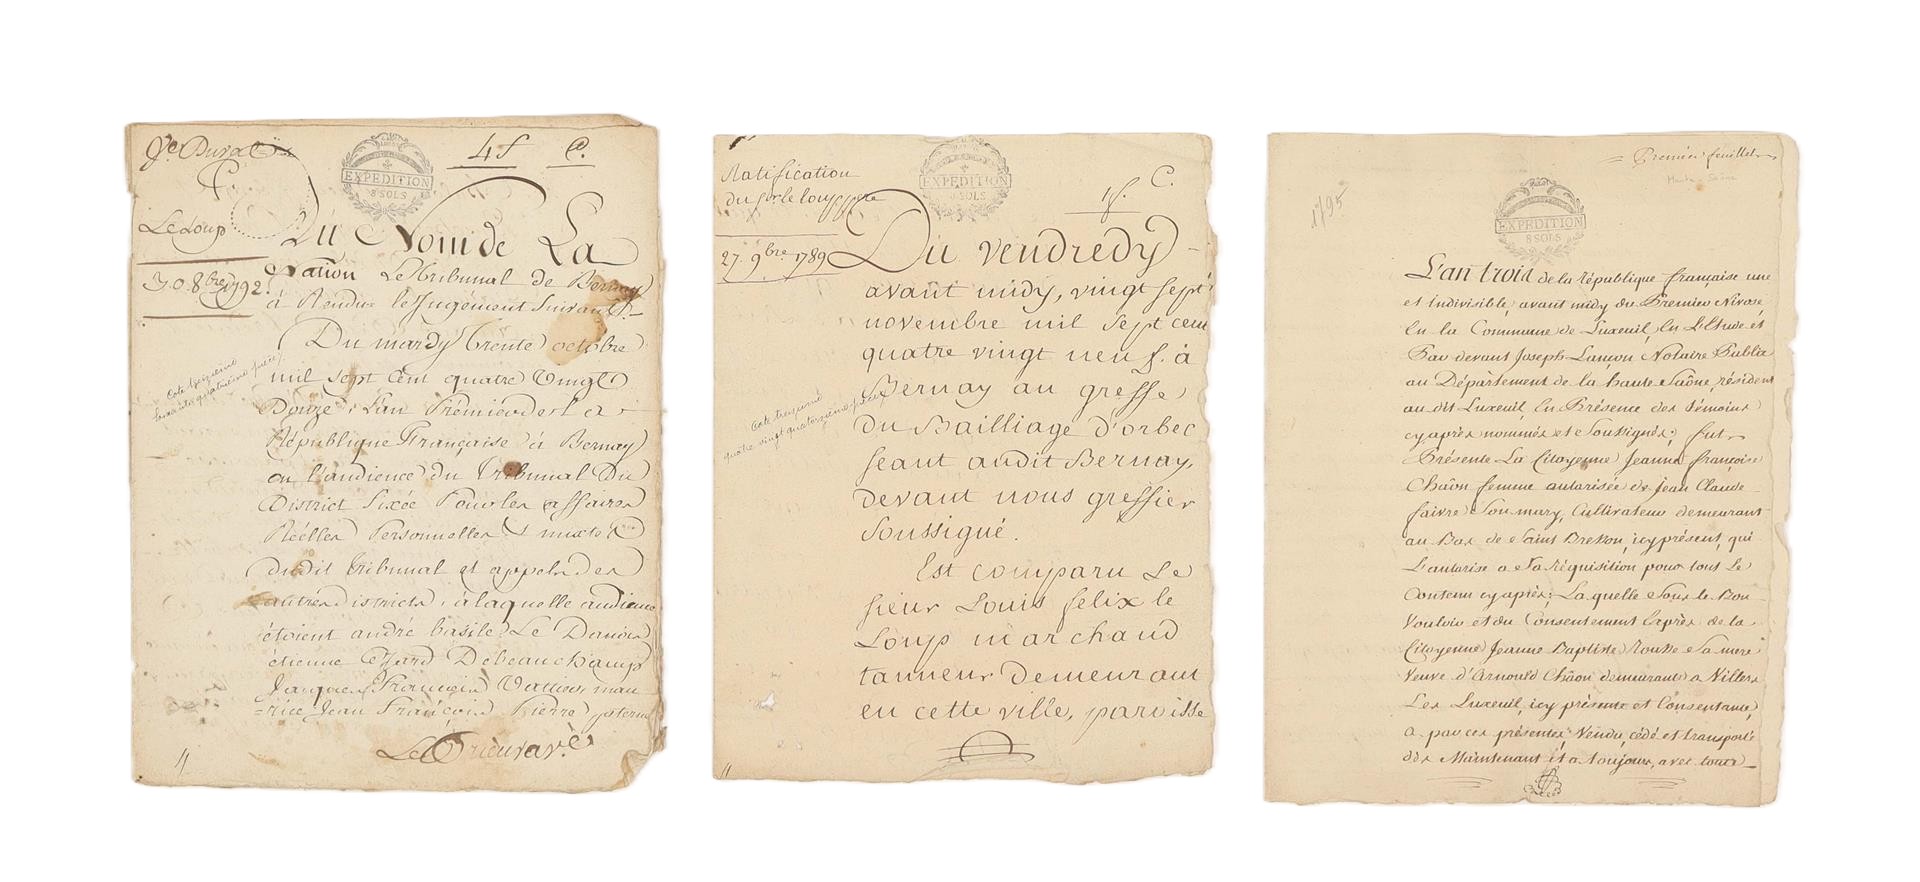 Le Loup
30. 8bre 1792.
4 f
C.
EXPEDITION
8 SOLS
Du Nom de La
Nation Le Tribunal de Bernay
à Rendu le Jugement Suivant
Du mardy trente octobre
mil sept cent quatre Vingt
Douze, L'an Premier de la
République Française à Bernay
en l'audience du Tribunal Du
District fixée Pour les affaires
Réelles Personnelles & mixtes
dudit tribunal et appels des
autres districts, à laquelle audience
étoient andré basile Le Danois
étienne Debeauchamp
Jacques François
Jean François Pierre
Cote treizieme
soixante quatrieme piece
Ratification
du sr le loup pere
27. 9bre 1789
1 f.
C.
EXPEDITION
8 SOLS
Du vendredy
avant midy, vingt sept
novembre mil sept cent
quatre vingt neuf. à
Bernay au greffe
du Bailliage d'orbec
seant audit Bernay,
devant nous greffier
soussigné.
Est comparu Le
sieur Louis felix le
Loup marchand
tanneur Demeurant
en cette ville, paroisse
Cote treizieme
quatre vingt quatorzieme piece
Premier feuillet
Haute-Saône
1795
EXPEDITION
8 SOLS
L'an trois de la République française une
et indivisible, avant midy du Premier Nivose
En la Commune de Luxeuil, En L'Etude et
Par devant Joseph Lançon Notaire Public
au Département de la haute Saône, résident
au dit Luxeuil En Présence des témoins
cy après nommés et Soussignés; fut
Présente La Citoyenne Jeanne françoise
Châon femme autorisée de Jean Claude
faivre Son mary, Cultivateur demeurant
au Bas de Saint Bresson, icy présent, qui
L'autorise a Sa réquisition pour tout Le
Contenu cy après; La quelle Sous le Bon
Vouloir et du Consentement Exprès de la
Citoyenne Jeanne Baptiste Rousse Sa mere
Veuve d'Arnould Châon demeurante a Villers
Les Luxeuil, icy présente et Consentante,
a par ces présentes Vendu, cédé et transporté
dès Maintenant et a toujours, avec toute